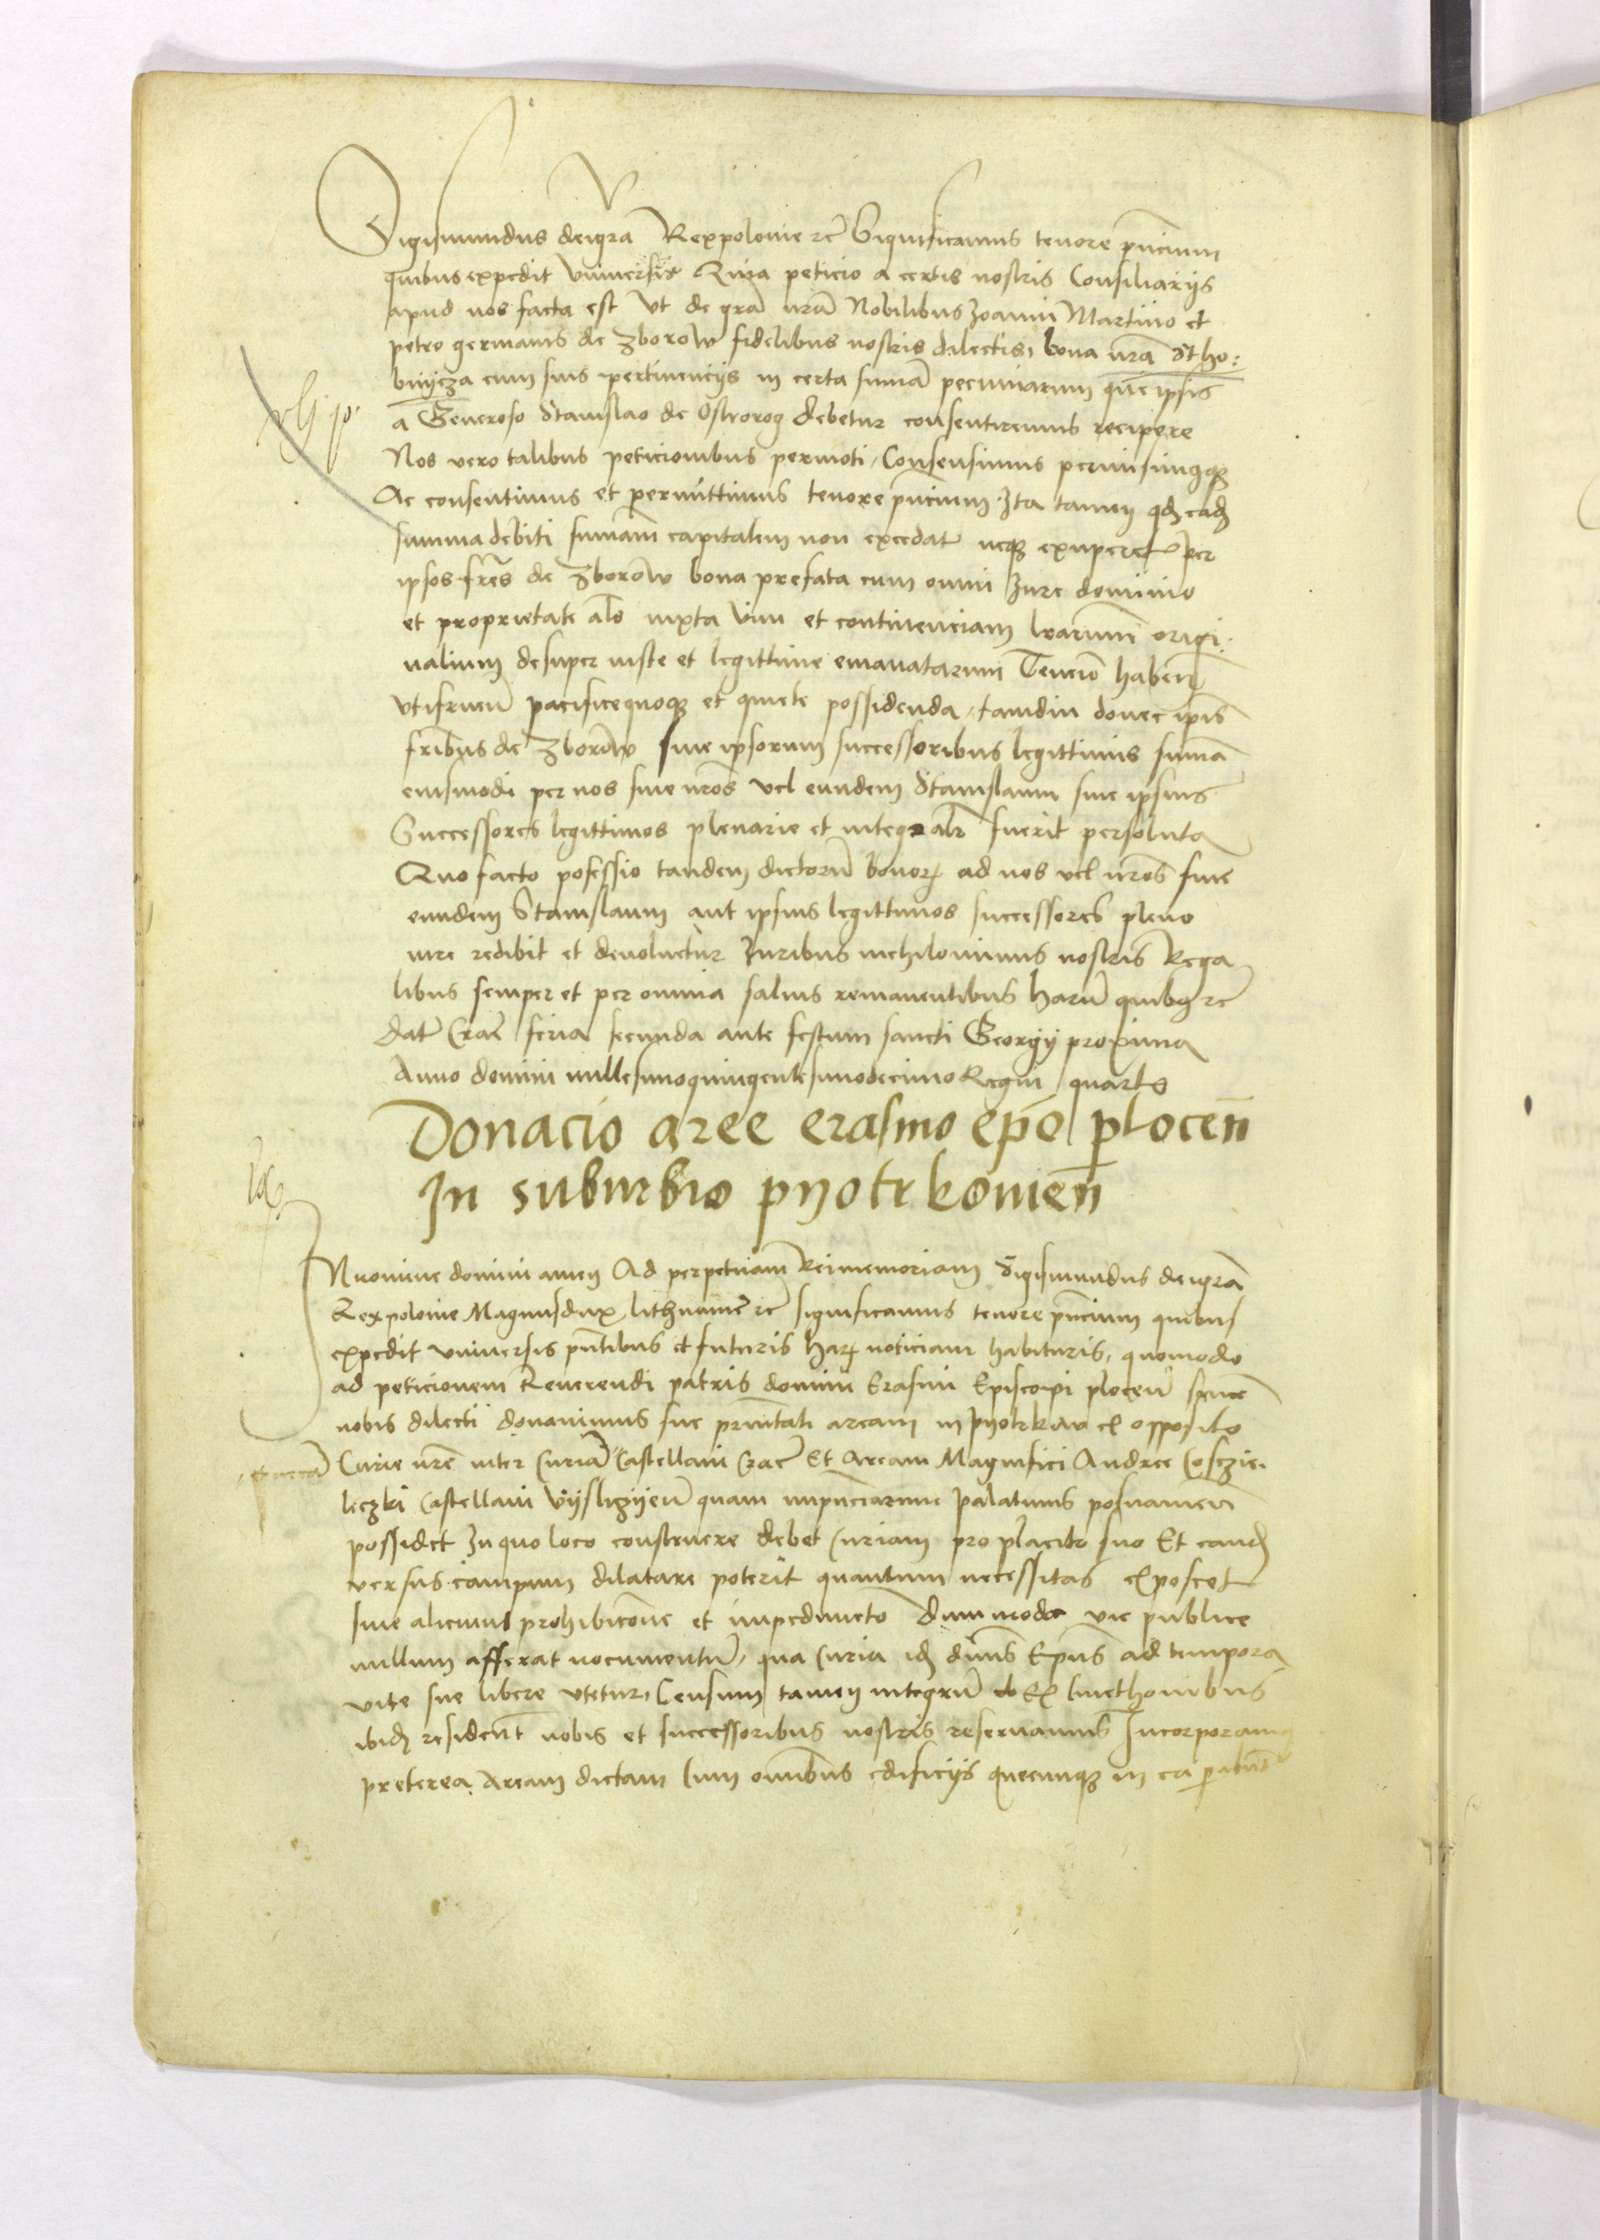 Sigismundus dei gra Rex polonie rc Significamus tenore pncium
quibus expedit Universis Quia peticio a certis nostris Consiliariis
apud nos facta est Ut de gra nra Nobilibus Joanni Martino et
petro germanis de Zborow fidelibus nostris dilectis, bona nra Stho:
bnycza cum suis pertinencijs in certa suma pecuniarum que ipsis
a Generoso Stanislao de Ostrorog debetur consentiremus recipere
Nos vero talibus peticionibus permoti, Consensimus permisimusq
Ac consentimus et permittimus tenore pncium. Ita tamen qd ead
summa debiti sumam capitalem non excedat neq exuperet Per
ipsos fres de Zborow bona prefata cum omni Jure dominio
et proprietate alo iuxta vim et continenciam lrarum origi:
nalium desuper iuste et legittime emanatarum Tenen haben
utifruen pacifice quoq et quiete possidenda, tamdiu donec ipis
fribus de Zborow sive ipsorum successoribus legittimis suma
eiusmodi per nos sive nros vel eundem Stanislaum sive ipsius
Successores legittimos plenarie et integralr fuerit persoluta
Quo facto possessio tandem dictoru bonor ad nos vel nros sive
eundem Stanislaum aut ipsius legittimos successores pleno
iure redibit et devoluetur Juribus nichilominus nostris Rega
libus semper et per omnia salvis remanentibus Haru quibq rc
Dat Crac feria secunda ante festum sancti Georgij proxima
Anno domini millesimoquingentesimodecimo Regni quarto
Donacio aree erasmo epo plocen
In suburbio pyotrkovien
In nomine domini amen Ad perpetuam Rei memoriam Sigismundus dei gra
Rex polonie Magnus dux lithuanie rc significamus tenore pncium quibus
expedit universis pntibus et futuris har noticiam habituris, quomodo
ad peticionem Reverendi patris domini Erasmi Episcopi plocen syncere
nobis dilecti donavimus sue pnitati aream in pyotrkow ex opposito
Curie nre inter Curia Castellani Crac Et Aream Magnifici Andree Cosczie.
leczki Castellani Vyslyzyen quam impnciarum Palatinus posnanien
possidet In quo loco construere debet Curiam pro placito suo Et eand
versus campum dilatare poterit quantum necessitas exposcet
sine alicuius prohibicone et impedimeto Dummodo vie publice
nullum afferat nocumentu, qua Curia id dnus Epus ad tempora
vite sue libere utetur, Censum tamen integru Ex Cmethonibus
ibid resident nobis et successoribus nostris reservamus Incorporamus
preterea Aream dictam Cum omnibus edificijs quecunq in ea